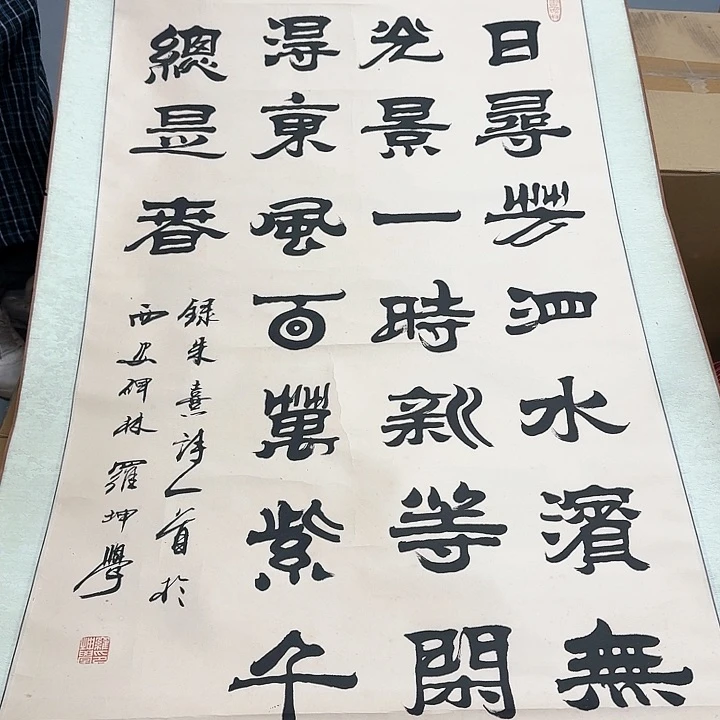 日尋芳泗水濱無
光景一時新等閑
得東風面萬紫千
總是春
錄朱熹詩一首於
西安碑林 羅坤學